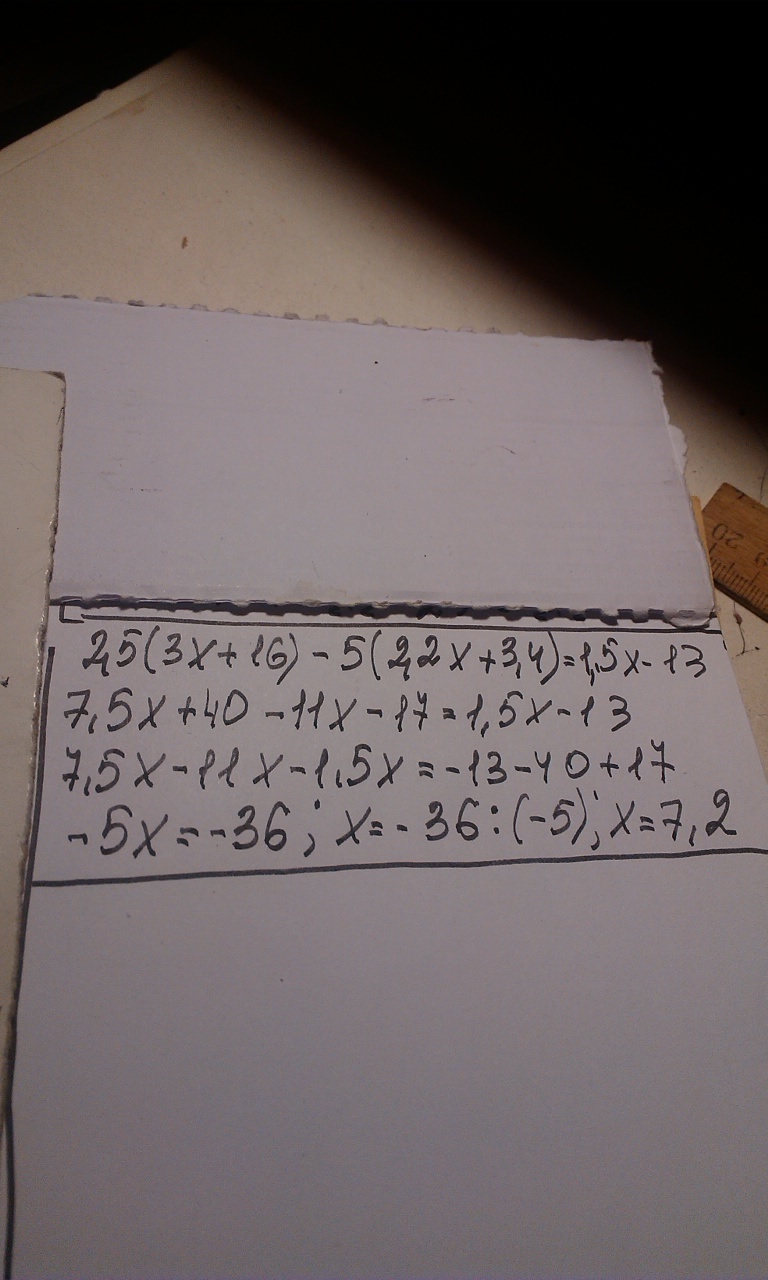 2,5(3x+16)-5(2,2x+3,4)=1,5x-13
7,5x+40-11x-17=1,5x-13
7,5x-11x-1,5x=-13-40+17
-5x=-36; x=-36:(-5); x=7,2
20